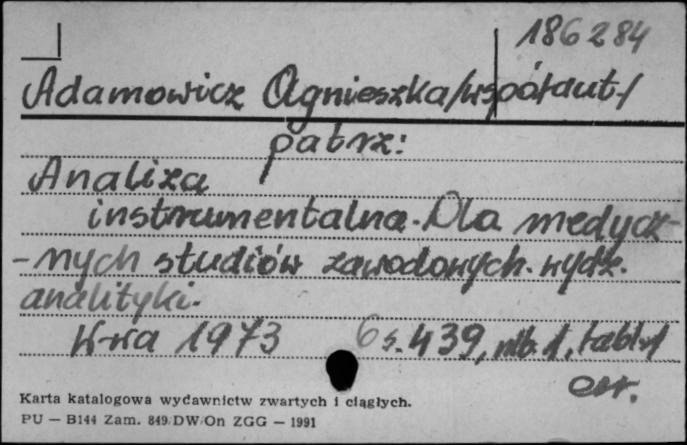 186284
Adamowicz Agnieszka/współaut./
patrz:
Analiza
instrumentalna. Dla medycz-
-nych studiów zawodowych. wydz.
analityki.
W-wa 1973 6 s. 439, nlb. 1, tabl.
Karta katalogowa wydawnictw zwartych i ciągłych.
PU — B144 Zam. 849/DW/On ZGG — 1991